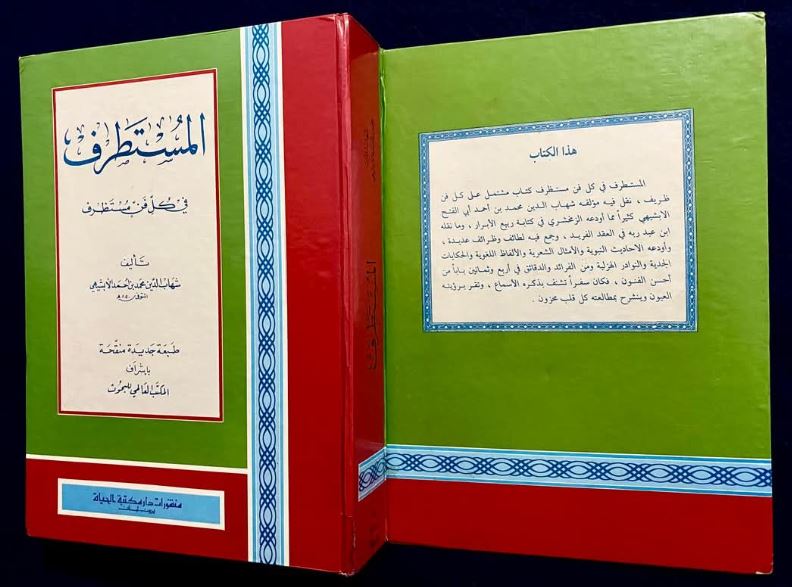 المُسْتَطرف
في كلّ فنٍّ مُسْتَظرف
تأليف
شهاب الدين محمد بن أحمد الأبشيهي
المتوفى ٨٥٠هـ
طبعة جديدة منقحة
بإشراف
المكتب العالمي للبحوث
منشورات دار مكتبة الحياة
بيروت - لبنان
المستطرف
هذا الكتاب
المستطرف في كل فن مستظرف كتاب مشتمل على كل فن
ظريف ، نقل فيه مؤلفه شهاب الدين محمد بن أحمد أبي الفتح
الابشيهي كثيراً مما اودعه الزمخشري في كتابه ربيع الأبرار ، وما نقله
ابن عبد ربه في العقد الفريد ، وجمع فيه لطائف وظرائف عديدة ،
وأودعه الاحاديث النبوية والأمثال الشعرية والألفاظ اللغوية والحكايات
الجدية والنوادر الهزلية ومن الفرائد والدقائق في أربع وثمانين باباً من
أحسن الفنون ، فكان سفراً تشنف بذكره الأسماع ، وتقر برؤيته
العيون وينشرح بمطالعته كل قلب محزون .